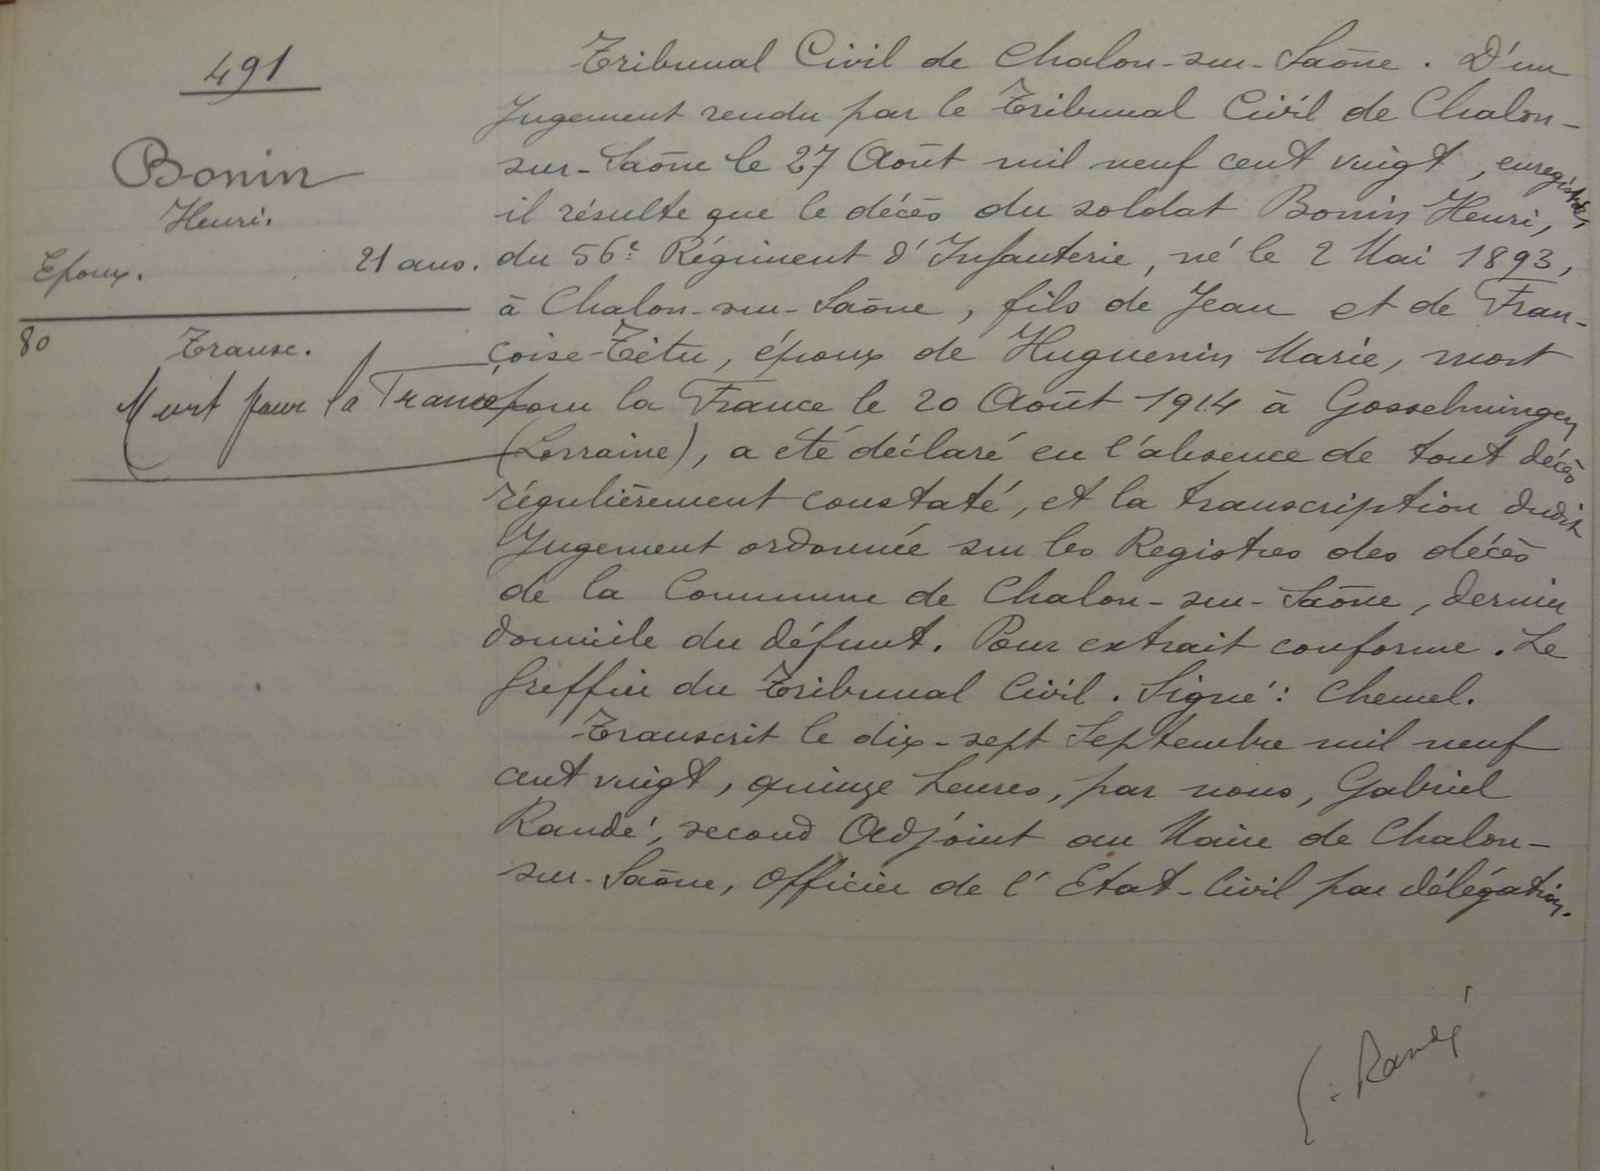 491
Bonin
Henri.
Epoux. 21 ans.
80
Transc.
Mort pour la France
Tribunal Civil de Chalon-sur-Saône. D'un
Jugement rendu par le Tribunal Civil de Chalon-
sur-Saône le 27 Août mil neuf cent vingt, enregistré,
il résulte que le décès du soldat Bonin Henri,
du 56e Régiment d'Infanterie, né le 2 Mai 1893,
à Chalon-sur-Saône, fils de Jean et de Fran-
çoise Têtu, époux de Huguenin Marie, mort
pour la France le 20 Août 1914 à Gosselmingen
(Lorraine), a été déclaré en l'absence de tout décès
régulièrement constaté, et la transcription dudit
Jugement ordonnée sur les Registres des décès
de la Commune de Chalon-sur-Saône, dernier
domicile du défunt. Pour extrait conforme. Le
Greffier du Tribunal Civil. Signé: Chemel.
Transcrit le dix-sept Septembre mil neuf
cent vingt, quinze heures, par nous, Gabriel
Randé, second Adjoint au Maire de Chalon-
sur-Saône, Officier de l'Etat-Civil par délégation.
G. Randé